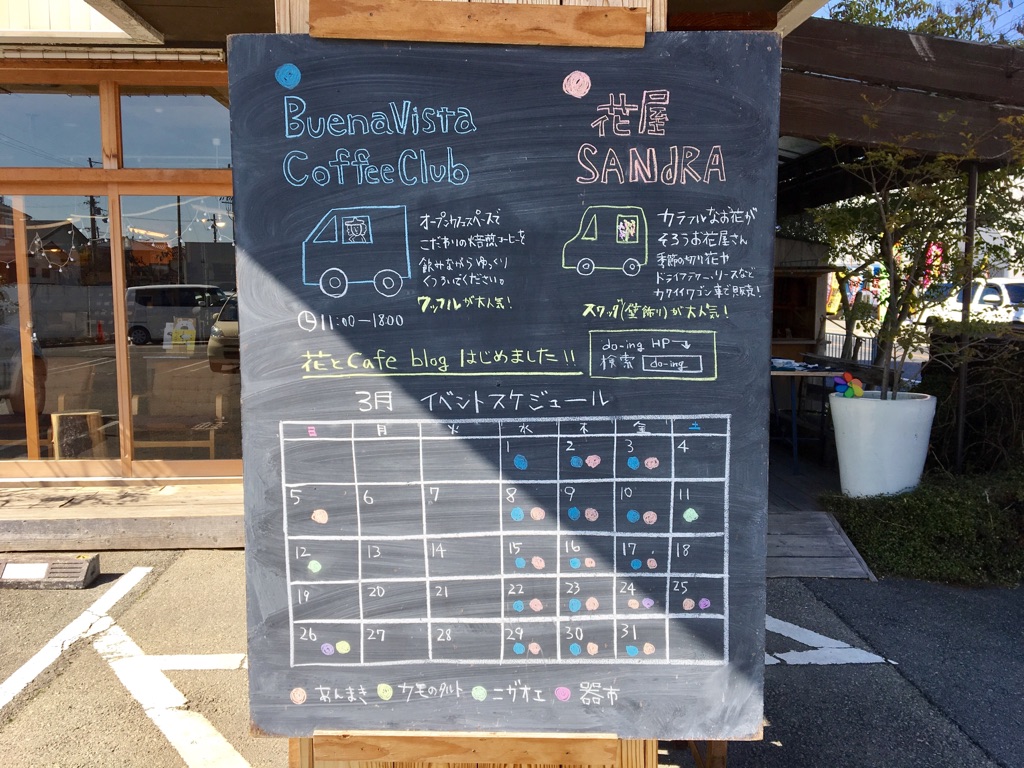 BuenaVista
Coffee Club
オープンカフェスペースで
こだわりの焙煎コーヒーを
飲みながらゆっくり
くつろいでください。
ワッフルが大人気!
11:00-18:00
花屋
SANdRA
カラフルなお花が
そろうお花屋さん
季節の切り花や
ドライフラワー・リースなど
カワイイワゴン車で販売!
スワッグ(壁飾り)が大人気!
花とCafe blog はじめました!!
do-ing HP→
検索 do-ing
3月 イベントスケジュール
日 月 火 水 木 金 土
1 2 3 4
5 6 7 8 9 10 11
12 13 14 15 16 17 18
19 20 21 22 23 24 25
26 27 28 29 30 31
あんまき ウモのタルト ニガオエ 器市